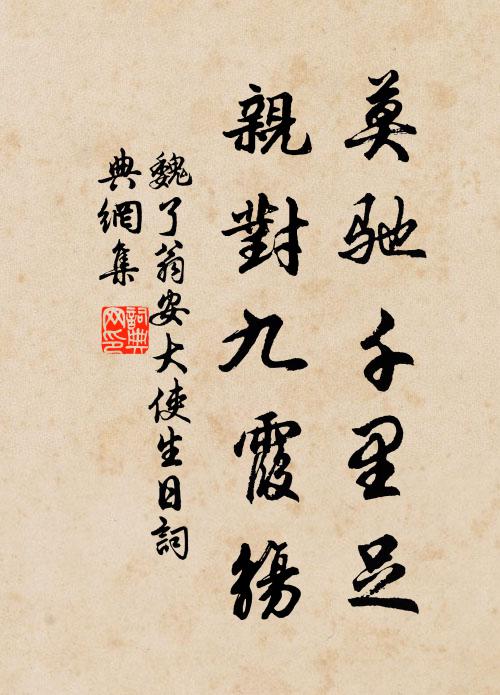 莫馳千里足
親對九霞觴
魏了翁安大使生日詞
典網集
詞典網印